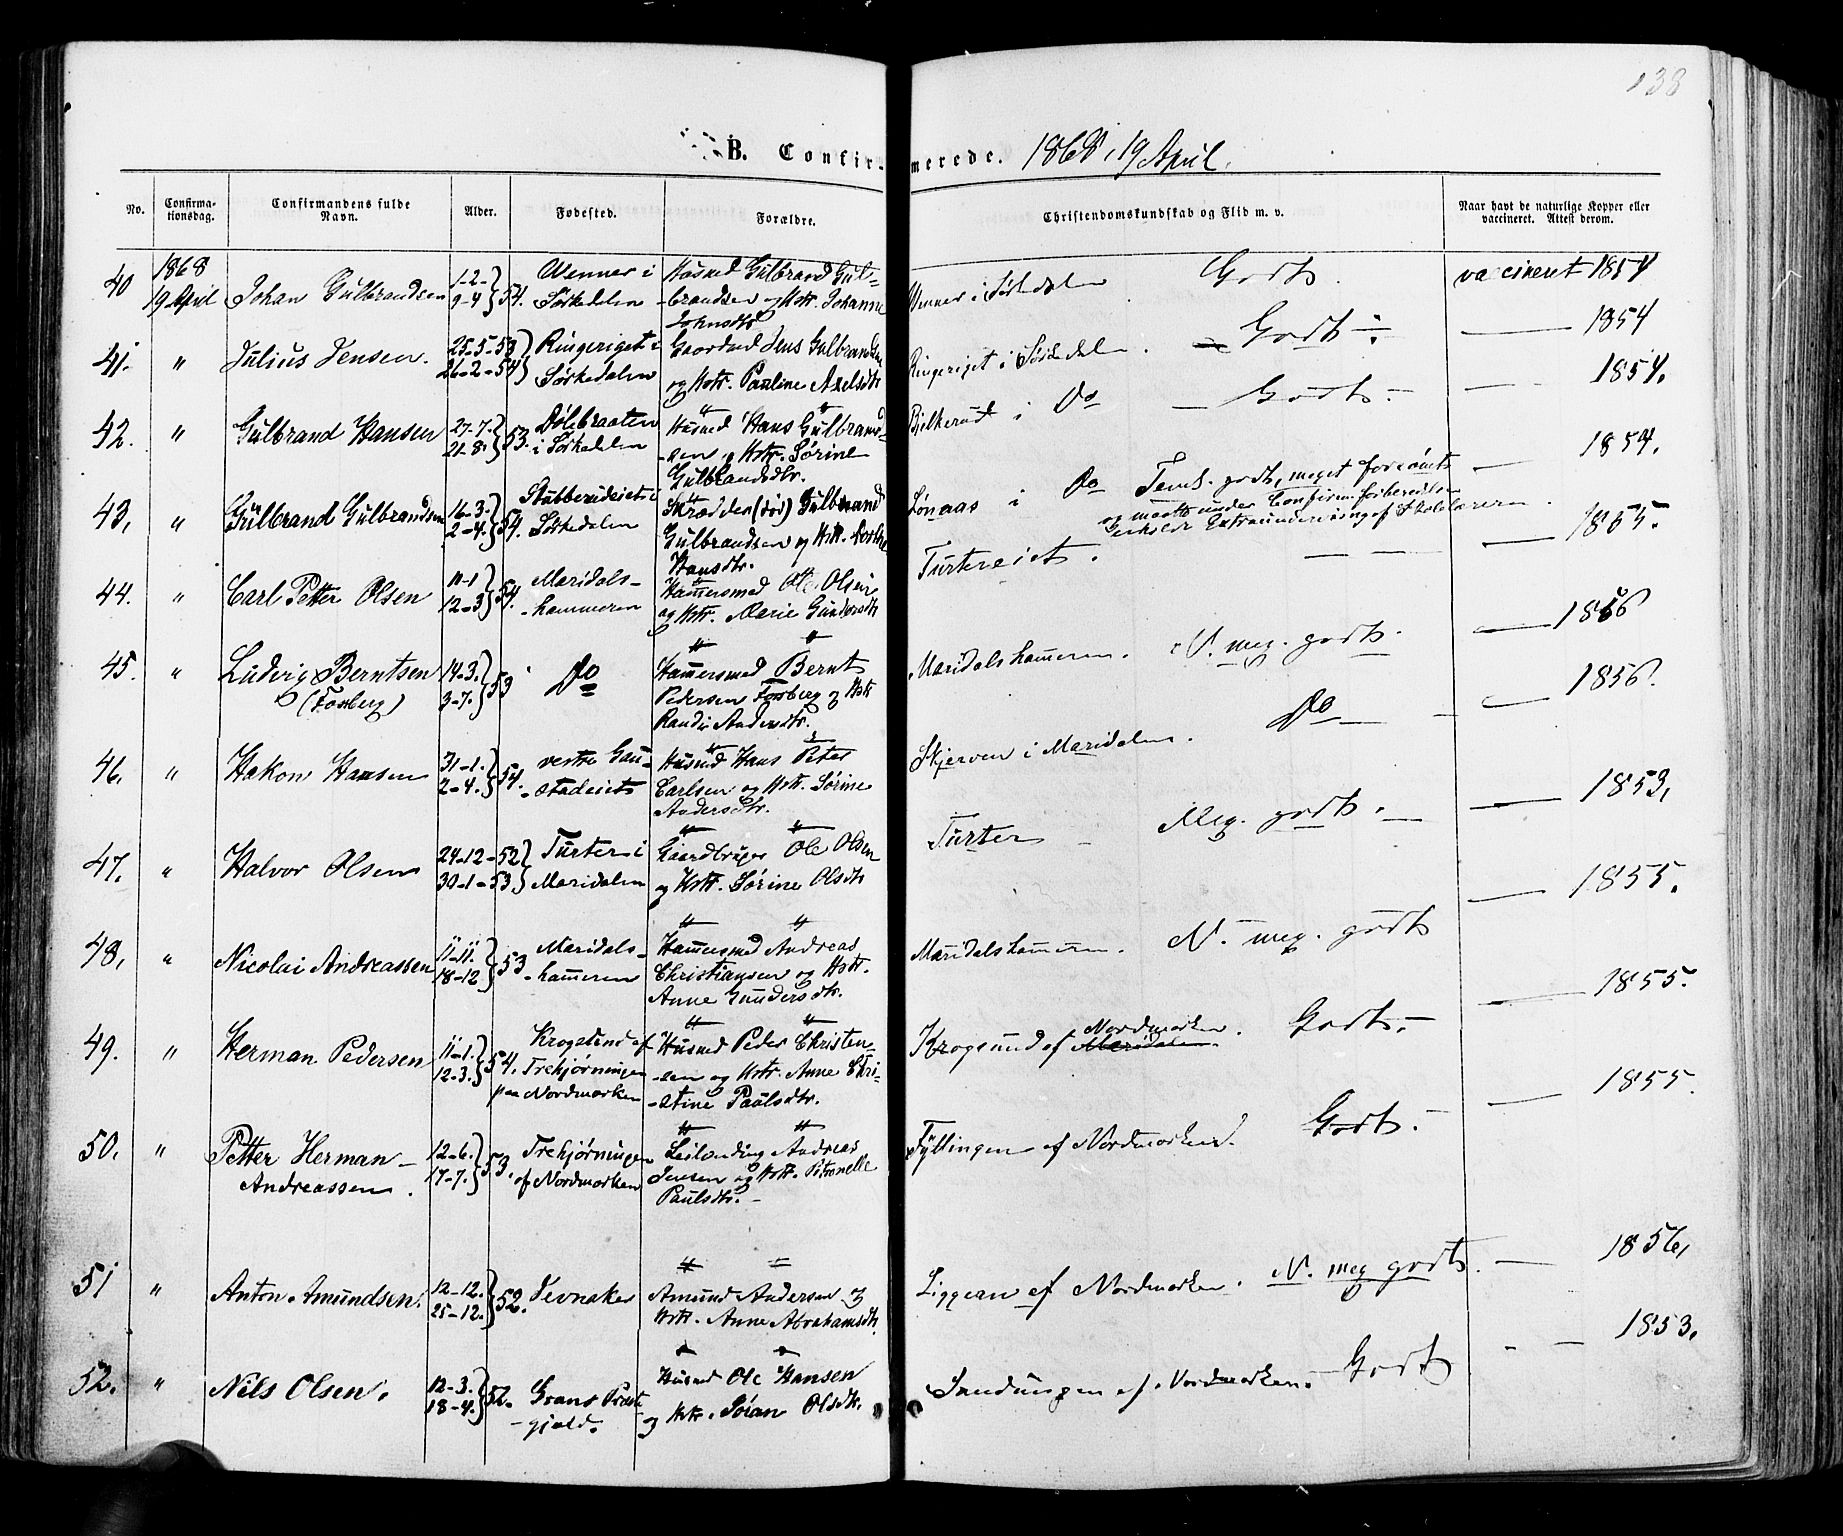 138
B. Confirmerede. 1868, 19 April.
No. Confirmationsdag. Confirmandens fulde Navn. Alder. Fødested. Forældre. Christendomskundskab og Flid m. v. Naar havt de naturlige Kopper eller vaccineret. Attest derom.
40 1868 19 April Johan Gulbrandsen 1-2- 9-4 } 54. Wenner i Sørkedalen Husmd Gulbrand Gul-
-brandsen og Hstr. Johanne
Johnsdtr
Wenner i Sørkedalen Godt. vaccineret 1854
41. " Julius Jensen. 25-5-53 26-2-54 } Ringeriget i Sørkedalen Gaardmd Jens Gulbrandsen
og Hstr. Pauline Axelsdtr
Ringeriget i Sørkedalen. — Godt ÷ — 1854
42. " Gulbrand Hansen 27-7. 21-8. } 53. Dølebraaten i Sørkedalen Husmd Hans Gulbrand-
-sen og Hstr. Sørine
Gulbrandsdtr.
Bilkerud i Do — Godt. — — 1854.
43, " Gulbrand Gulbrandsen 16-3. 2-4. } 54. Stubberudeiet i Sørkedalen Skrædder (død) Gulbrand
Gulbrandsen og Hstr.
Hansdtr.
Lønaas i Do Temk. godt, meget forsømt
og maatte under Confirm. forberedelsen
Extraundervisning af Skolelæreren. — 1854.
44. " Carl Petter Olsen 11-1 12-3 } 54. Maridals-
-hammeren Hammersmed Ole Olsen
og Hstr. Marie Gundersdtr
Turtereiet. — — — 1855.
45. " Ludvig Berntsen
(Fosberg) 14-3. 3-7. } 53 Do Hammersmed Bernt
Pedersen Fosberg og Hstr
Randi Andersdtr.
Maridalshammeren. N. meg. godt. — 1856
46. " Hakon Hansen 31-1. 2-4. } 54. vestre Gau-
-stadeiet Husmd Hans Peter
Carlsen og Hstr. Sørine
Andersdtr.
Skjerven i Maridalen. Do — — 1856.
47. " Halvor Olsen 24-12-52 30-1-53 } Turter i
Maridalen Gaardbruger Ole Olsen
og Hstr. Sørine Olsdtr
Turter Meg. godt. — — 1853,
48, " Nicolai Andreassen 11-11. 18-12 } 53 Maridals-
-hammeren Hammersmed Andreas
Christiansen og Hstr.
Anne Gundersdtr.
Maridalshammeren. N. meg. godt — 1855.
49. " Herman Pedersen 11-1. 12-3. } 54. Krogsund af
Trehjørningen
paa Nordmarken Husmd Peder Christen-
-sen og Hstr. Anne Chri-
-stine Paulsdtr.
Krogsund af Maridalen Nordmarken. Godt. — 1855.
50. " Petter Herman
Andreassen. 12-6. 17-7. } 53. Trehjørningen
af Nordmarken Leilending Andreas
Jensen og Hstr. Petronelle
Paulsdtr.
Fyllingen af Nordmarken. Godt. — — 1855
51 " Anton Amundsen. 12-12. 25-12. } 52. Jevnaker Amund Andersen og
Hstr. Anne Abrahamsdtr.
Liggeren af Nordmarken. N. meg godt. — 1856,
52. " Nils Olsen. 12-3. 18-4. } 52. Grans Præste-
-gjeld. Husmd Ole Hansen
og Hstr. Olsdtr.
Sandungen af Nordmarken. Godt — 1853,